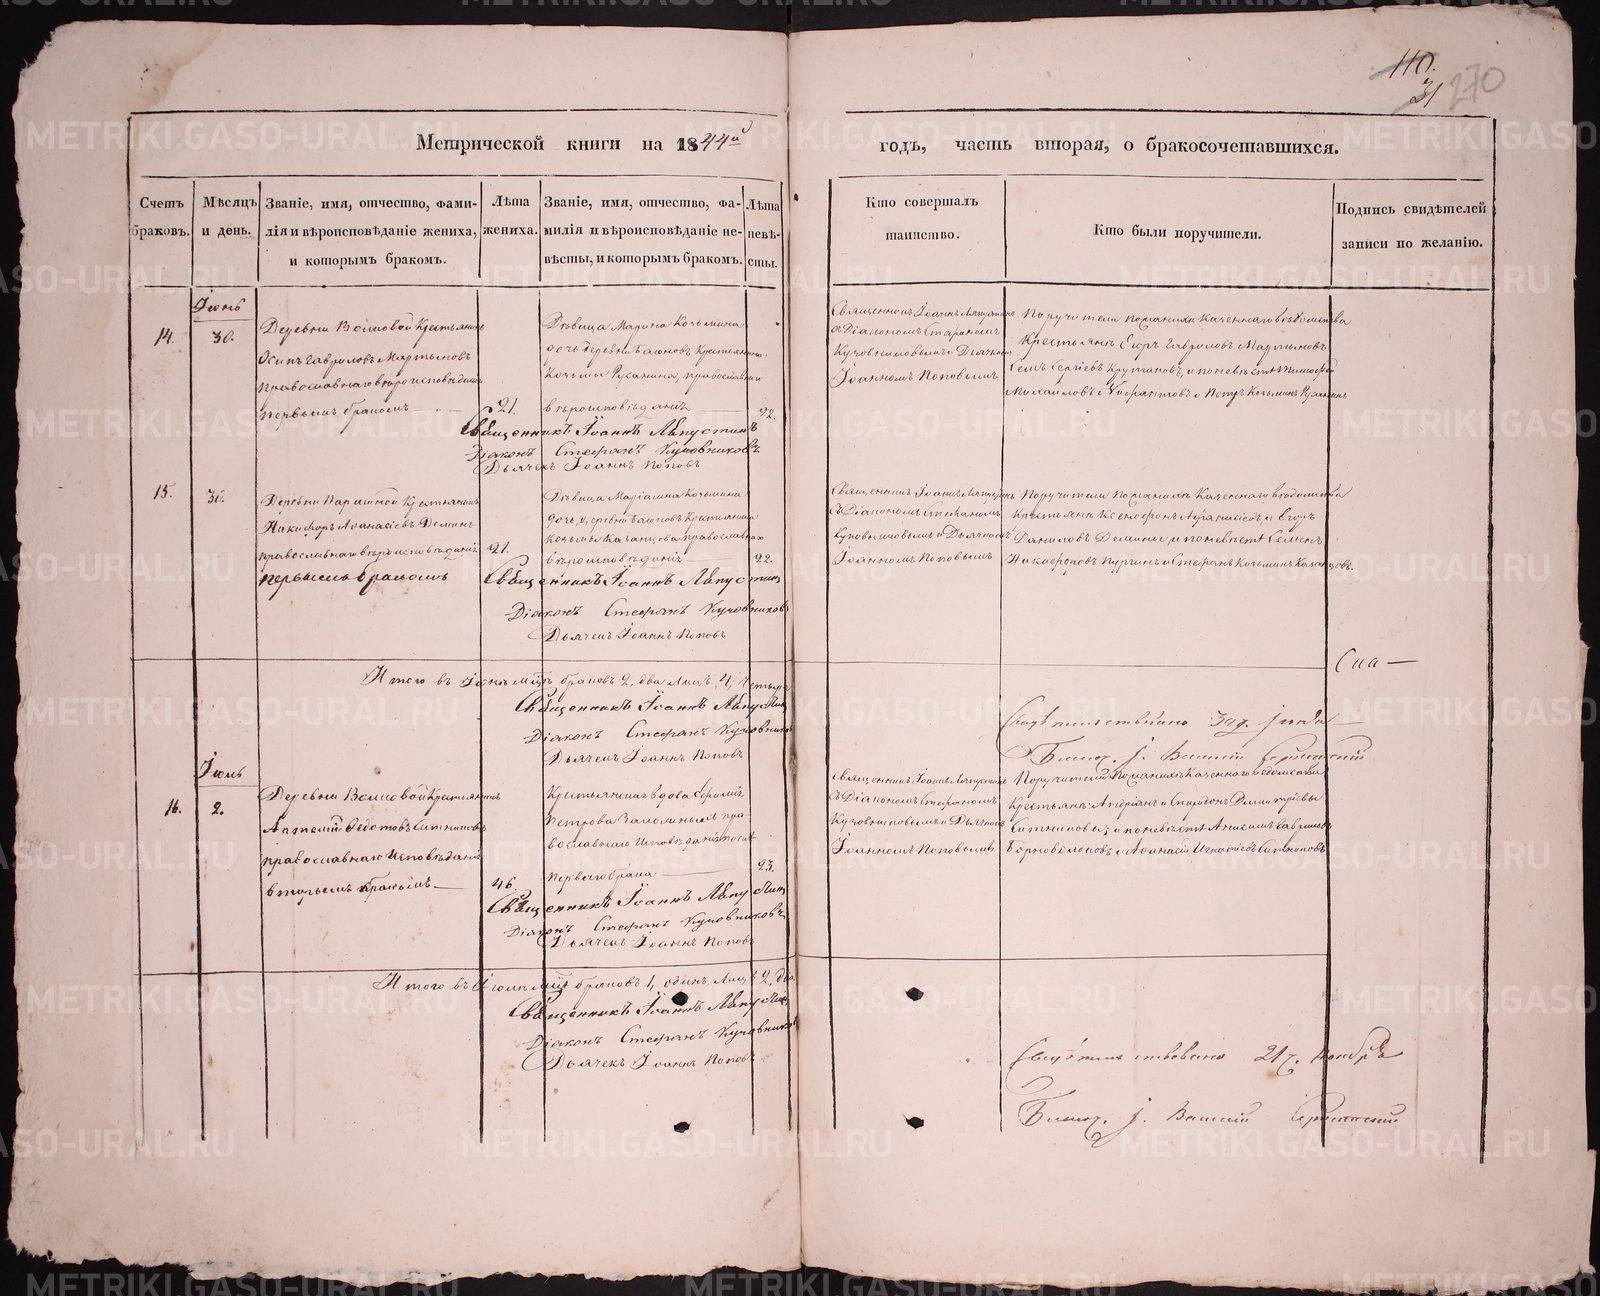 110.
31
270
Метрической книги на 1844й
годъ, часть вторая, о бракосочетавшихся.
Счетъ браковъ.
Мѣсяцъ и день.
Званіе, имя, отчество, фами-
лія и вѣроисповѣданіе жениха,
и которымъ бракомъ.
Лѣта жениха.
Званіе, имя, отчество, фа-
милія и вѣроисповѣданіе не-
вѣсты, и которымъ бракомъ.
Лѣта невѣ-
сты.
Кто совершалъ
таинство.
Кто были поручители.
Подпись свидѣтелей
записи по желанію.
Іюнь
14.
30.
Деревни Волковой Крестьянинъ
Осипъ Гавриловъ Мартыновъ
православнаго вѣроисповѣданія
первымъ бракомъ
21.
Дѣвица Марина Козьмина
дочь деревни Крестьянина
Козьмы Русанина, православнаго
вѣроисповѣданія
22.
Священникъ Іоаннъ Ляпустинъ
съ Діакономъ Стефаномъ
Кузовниковымъ и Дьячкомъ
Іоанномъ Поповымъ
Поручители по женихѣ Казеннаго вѣдомства
Крестьяне Егоръ Гавриловъ Мартыновъ
Сергіевъ и по невѣстѣ
Михаиловъ и Петръ Козьминъ Русанинъ
Священникъ Іоаннъ Ляпустинъ
Діаконъ Стефанъ Кузовниковъ
Дьячекъ Іоаннъ Поповъ
15.
30.
Деревни Крестьянинъ
Никифоръ Афанасіевъ Деминъ
православнаго вѣроисповѣданія
первымъ бракомъ
21.
Дѣвица Маріамна Козьмина
дочь деревни Крестьянина
Козьмы Казанцова православнаго
вѣроисповѣданія
22.
Священникъ Іоаннъ Ляпустинъ
съ Діакономъ Стефаномъ
Кузовниковымъ и Дьячкомъ
Іоанномъ Поповымъ
Поручители по женихѣ Казеннаго вѣдомства
Крестьяне Ксенофонъ Афанасіевъ и Егоръ
Даниловъ Демины, и по невѣстѣ Семенъ
Никифоровъ Пургинъ и Стефанъ Козьминъ Казанцовъ.
Священникъ Іоаннъ Ляпустинъ
Діаконъ Стефанъ Кузовниковъ
Дьячекъ Іоаннъ Поповъ
Итого въ Іюнѣ мцѣ браковъ 2, два лицъ, 4, четыре
Священникъ Іоаннъ Ляпустинъ
Діаконъ Стефанъ Кузовниковъ
Дьячекъ Іоаннъ Поповъ
Свидѣтельствовано
Благоч. І. Василій
Іюль
16.
2.
Деревни Волковой Крестьянинъ
Федотовъ Ситниковъ
православнаго исповѣданія
вторымъ бракомъ
46.
Крестьянская вдова
Петрова пра-
вославнаго исповѣданія послѣ
перваго брака
23.
Священникъ Іоаннъ Ляпустинъ
съ Діакономъ Стефаномъ
Кузовниковымъ и Дьячкомъ
Іоанномъ Поповымъ
Поручители по женихѣ Казеннаго вѣдомства
Крестьяне Андріанъ и Спиридонъ Димитріевы
Ситниковы; и по невѣстѣ Анисимъ Гавриловъ
и Афанасій Игнатіевъ Ситниковъ
Священникъ Іоаннъ Ляпустинъ
Діаконъ Стефанъ Кузовниковъ
Дьячекъ Іоаннъ Поповъ
Итого въ Іюлѣ мцѣ браковъ 1, одинъ, лицъ 2, два
Священникъ Іоаннъ Ляпустинъ
Діаконъ Стефанъ Кузовниковъ
Дьячекъ Іоаннъ Поповъ
Свидѣтельствовано 21 Ноября
Благоч. І. Василій
METRIKI.GASO-URAL.RU